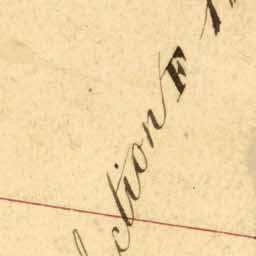 ction F